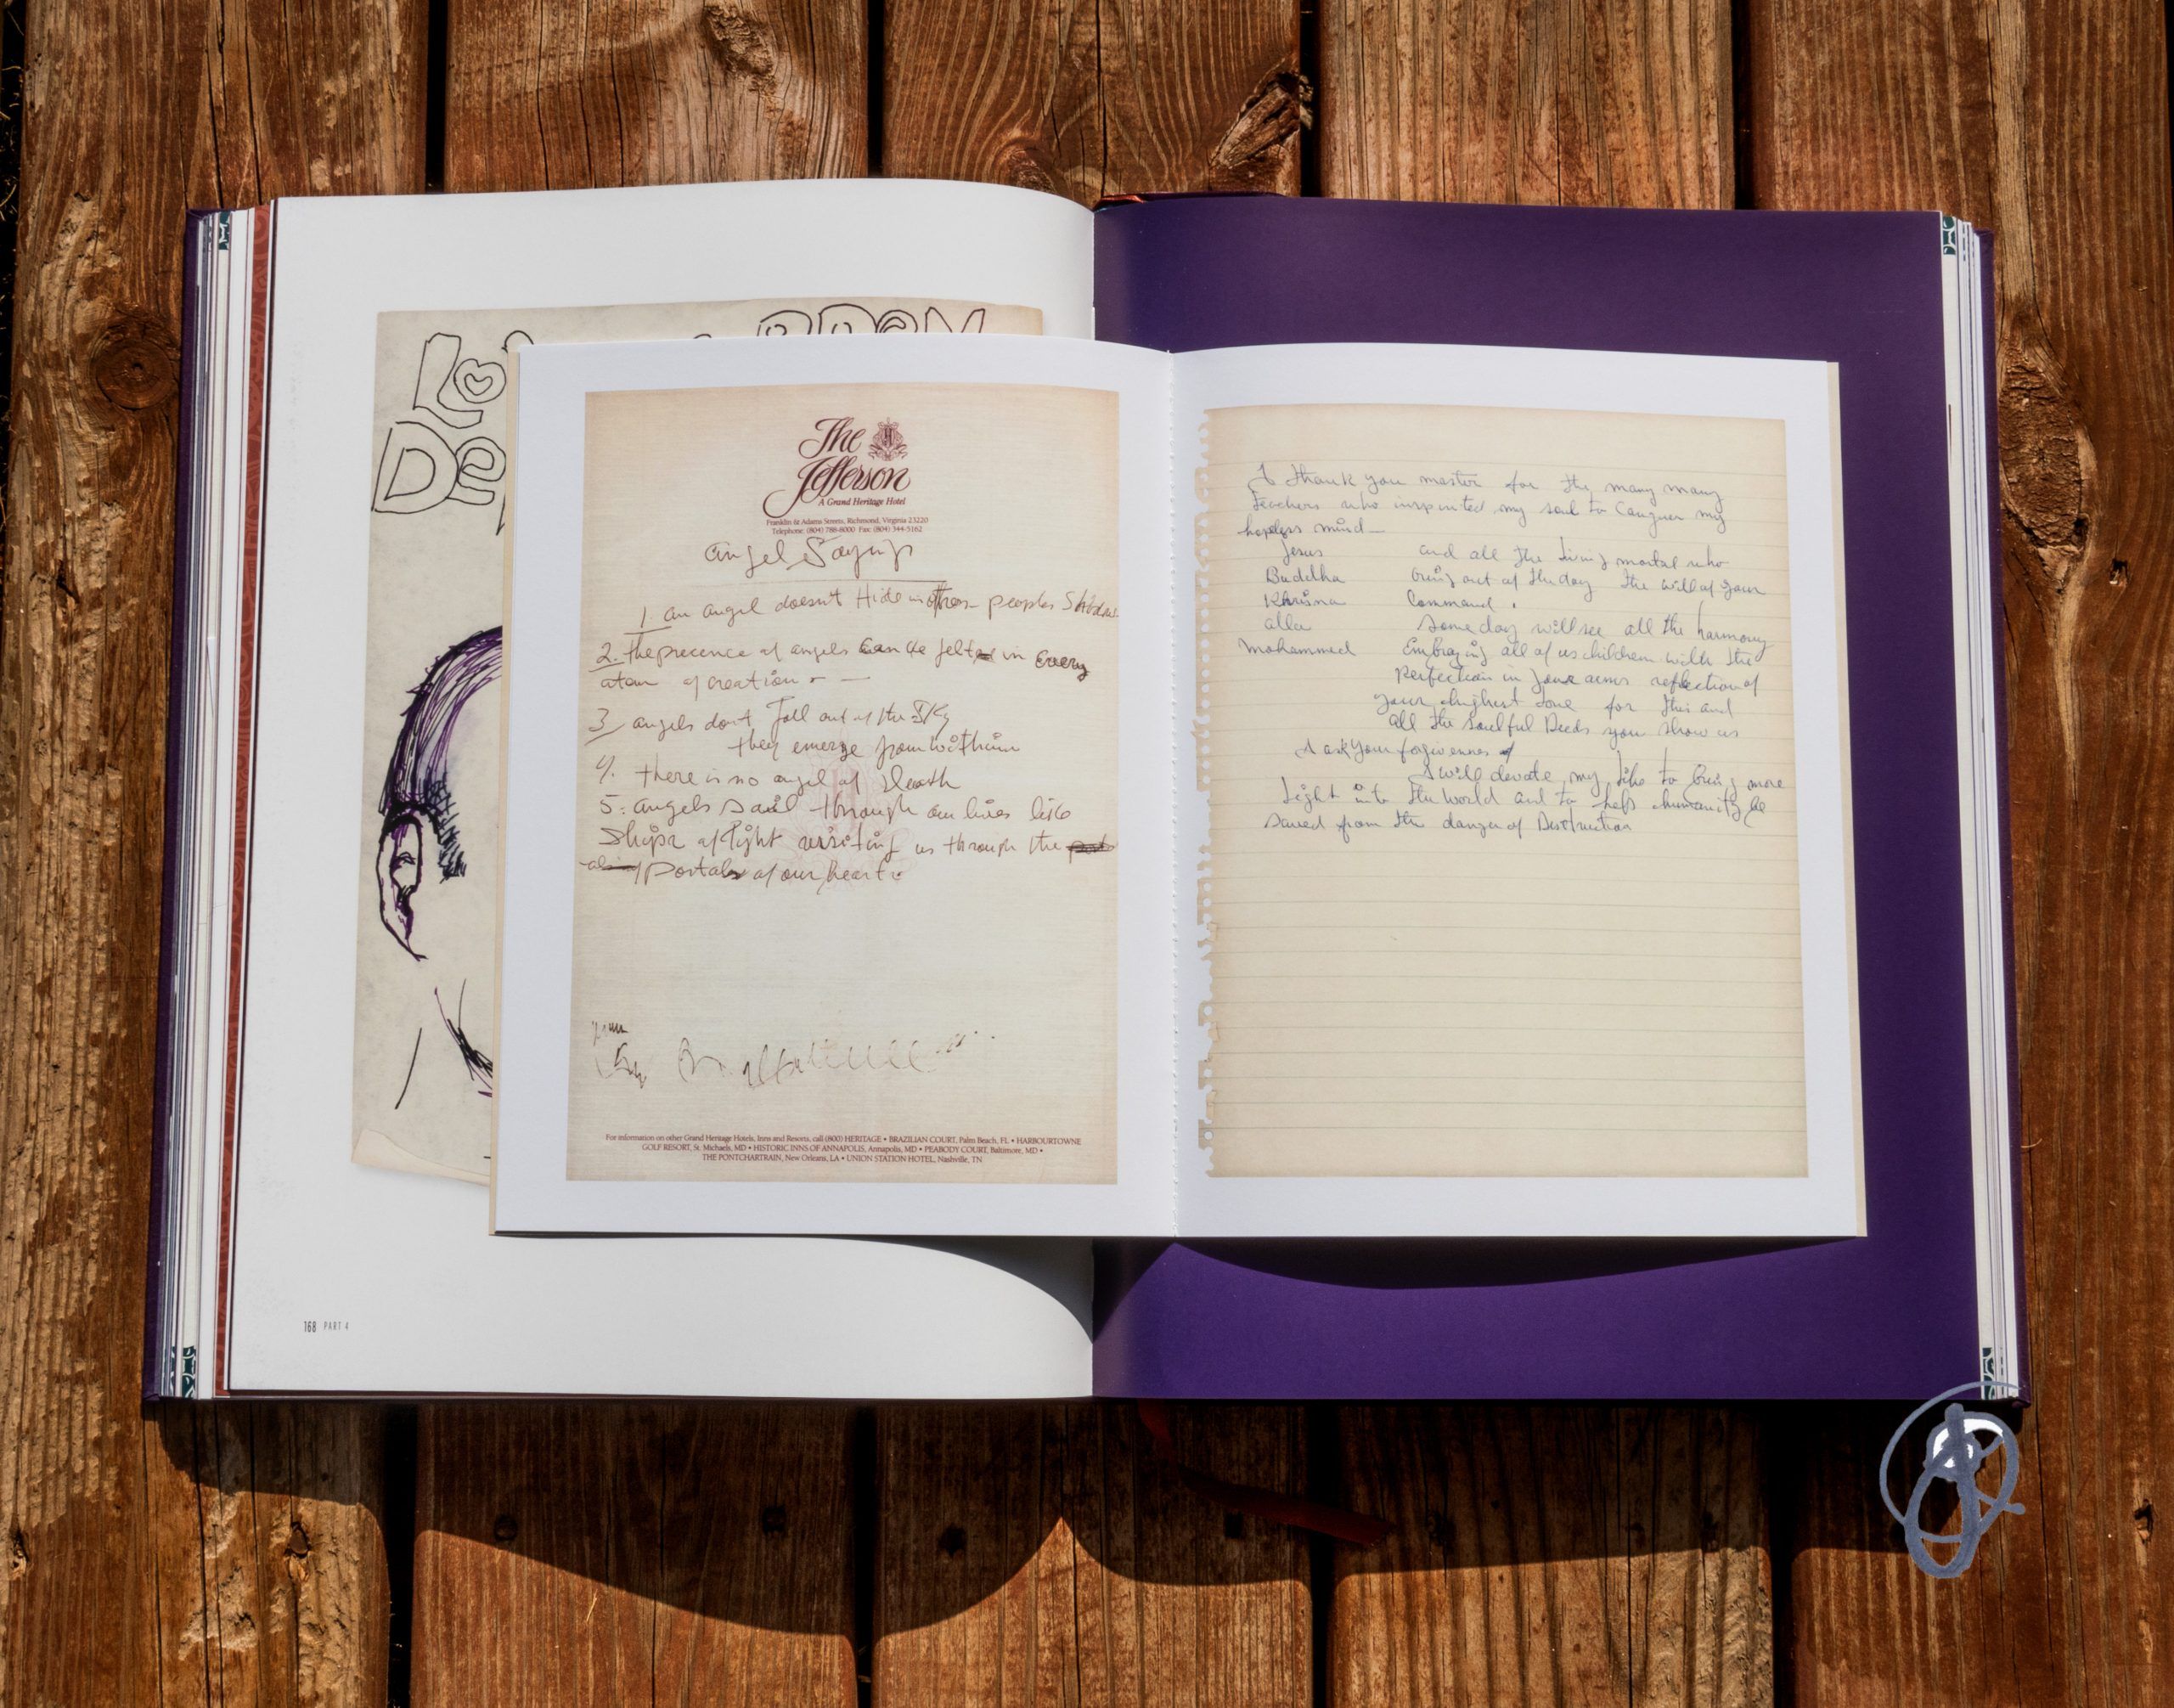 Lo
De
The
Jefferson
A Grand Heritage Hotel
Franklin & Adams Streets, Richmond, Virginia 23220
Telephone: (804) 788-8000 Fax: (804) 344-5162
angel Sayings
1. an angel doesnt Hide in others peoples
2. the precence of angels can be felt in Every
atom of creation
3, angels dont fall out of the SKy
they emerge from within
4. there is no angel of Death
5: angels sail through our lives like
Ships of light visiting us through the
portals of our heart
For information on other Grand Heritage Hotels, Inns and Resorts, call (800) HERITAGE • BRAZILIAN COURT, Palm Beach, FL • HARBOURTOWNE
GOLF RESORT, St. Michaels, MD • HISTORIC INNS OF ANNAPOLIS, Annapolis, MD • PEABODY COURT, Baltimore, MD •
THE PONTCHARTRAIN, New Orleans, LA • UNION STATION HOTEL, Nashville, TN
168 PART 4
I thank you master for the many many
teachers who my soul to Conquer my
mind
Jesus and all the living mortal who
Buddha bring out of the day the will of your
Khrisna Command.
alla Someday will see all the harmony
Mohammed all of us children with the
Perfection in your arms reflection of
your highest love for this and
all the soulful Deeds you show us
I ask your
I will devate my life to bring more
Light into the World and to help humanity be
saved from the danger of Destruction